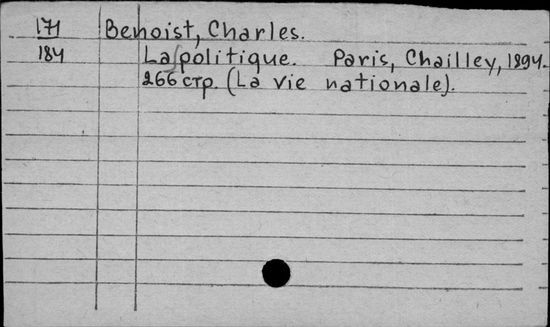 171 Benoist, Charles.
184 La politique. Paris, Chailley, 1894.
266 стр. (La vie nationale).